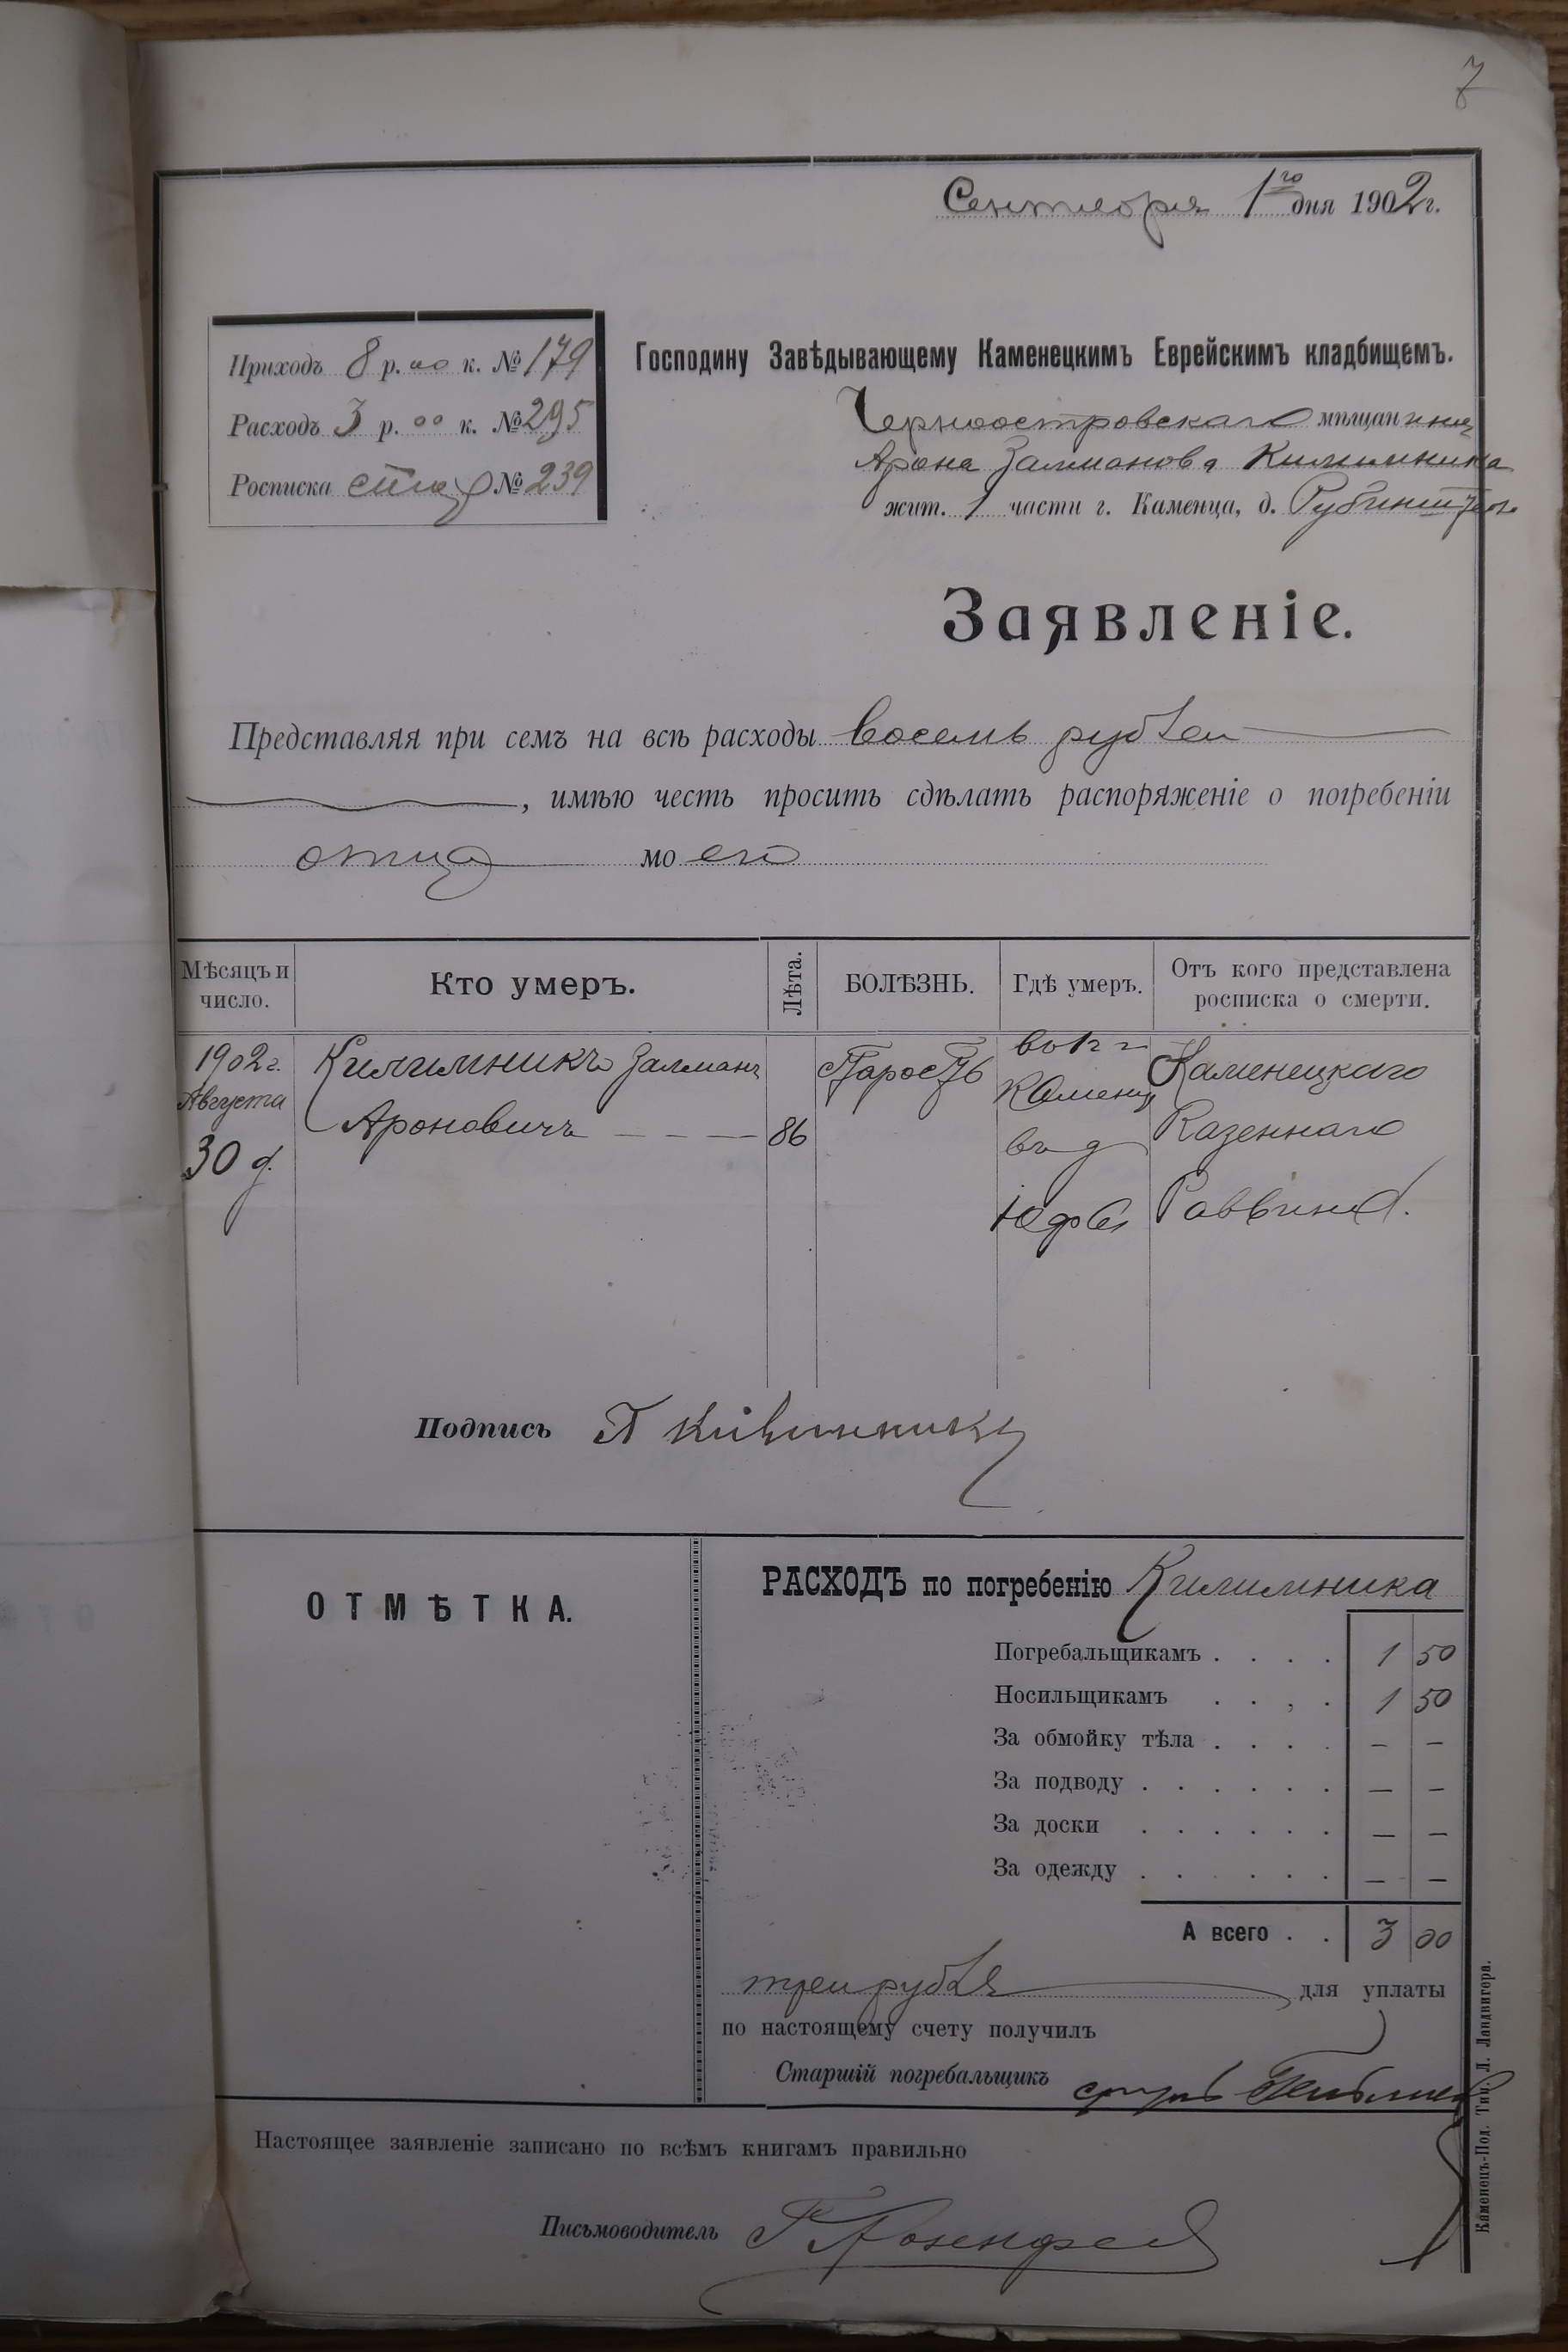 7
Сентября 1го дня 1902 г.
Приходъ 8 р. оо к. № 179
Расходъ 3 р. оо к. № 295
Росписка № 239
Господину Завѣдывающему Каменецкимъ Еврейскимъ кладбищемъ.
Черноостровскаго мѣщанина
Арона Залманова Килимника
жит. 1 части г. Каменца, д.
Заявленіе.
Представляя при семъ на всѣ расходы восемь рублей
, имѣю честь просить сдѣлать распоряженіе о погребеніи
отца моего
Мѣсяцъ и число.
Кто умеръ.
Лѣта.
БОЛѢЗНЬ.
Гдѣ умеръ.
Отъ кого представлена росписка о смерти.
1902 г. Августа 30 д.
Килимникъ Залманъ Ароновичъ
86
Старость
Каменц въ д
Каменецкаго Казеннаго Раввина.
Подпись А Килимникъ
ОТМѢТКА.
РАСХОДЪ по погребенію Килимника
Погребальщикамъ . . . . 1 50
Носильщикамъ . . , . 1 50
За обмойку тѣла . . . . – –
За подводу . . . . . . – –
За доски . . . . . . – –
За одежду . . . . . . – –
А всего . . 3 00
три рубля для уплаты
по настоящему счету получилъ
Старшій погребальщикъ
Настоящее заявленіе записано по всѣмъ книгамъ правильно
Письмоводитель
Каменецъ-Под. Тип. Л. Ландвигера.